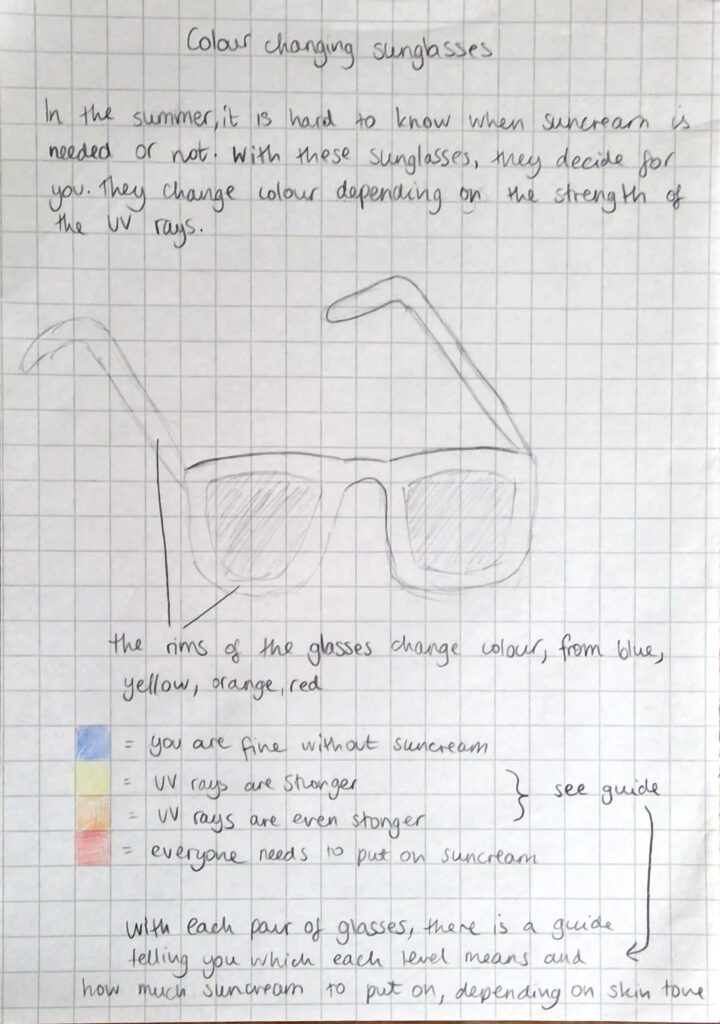 Colour changing sunglasses
In the summer, it is hard to know when suncream is
needed or not. With these sunglasses, they decide for
you. They change colour depending on the strength of
the UV rays.
the rims of the glasses change colour, from blue,
yellow, orange, red
= you are fine without suncream
= UV rays are stronger
= UV rays are even stonger
= everyone needs to put on suncream
} see guide
With each pair of glasses, there is a guide
telling you which each level means and
how much suncream to put on, depending on skin tone